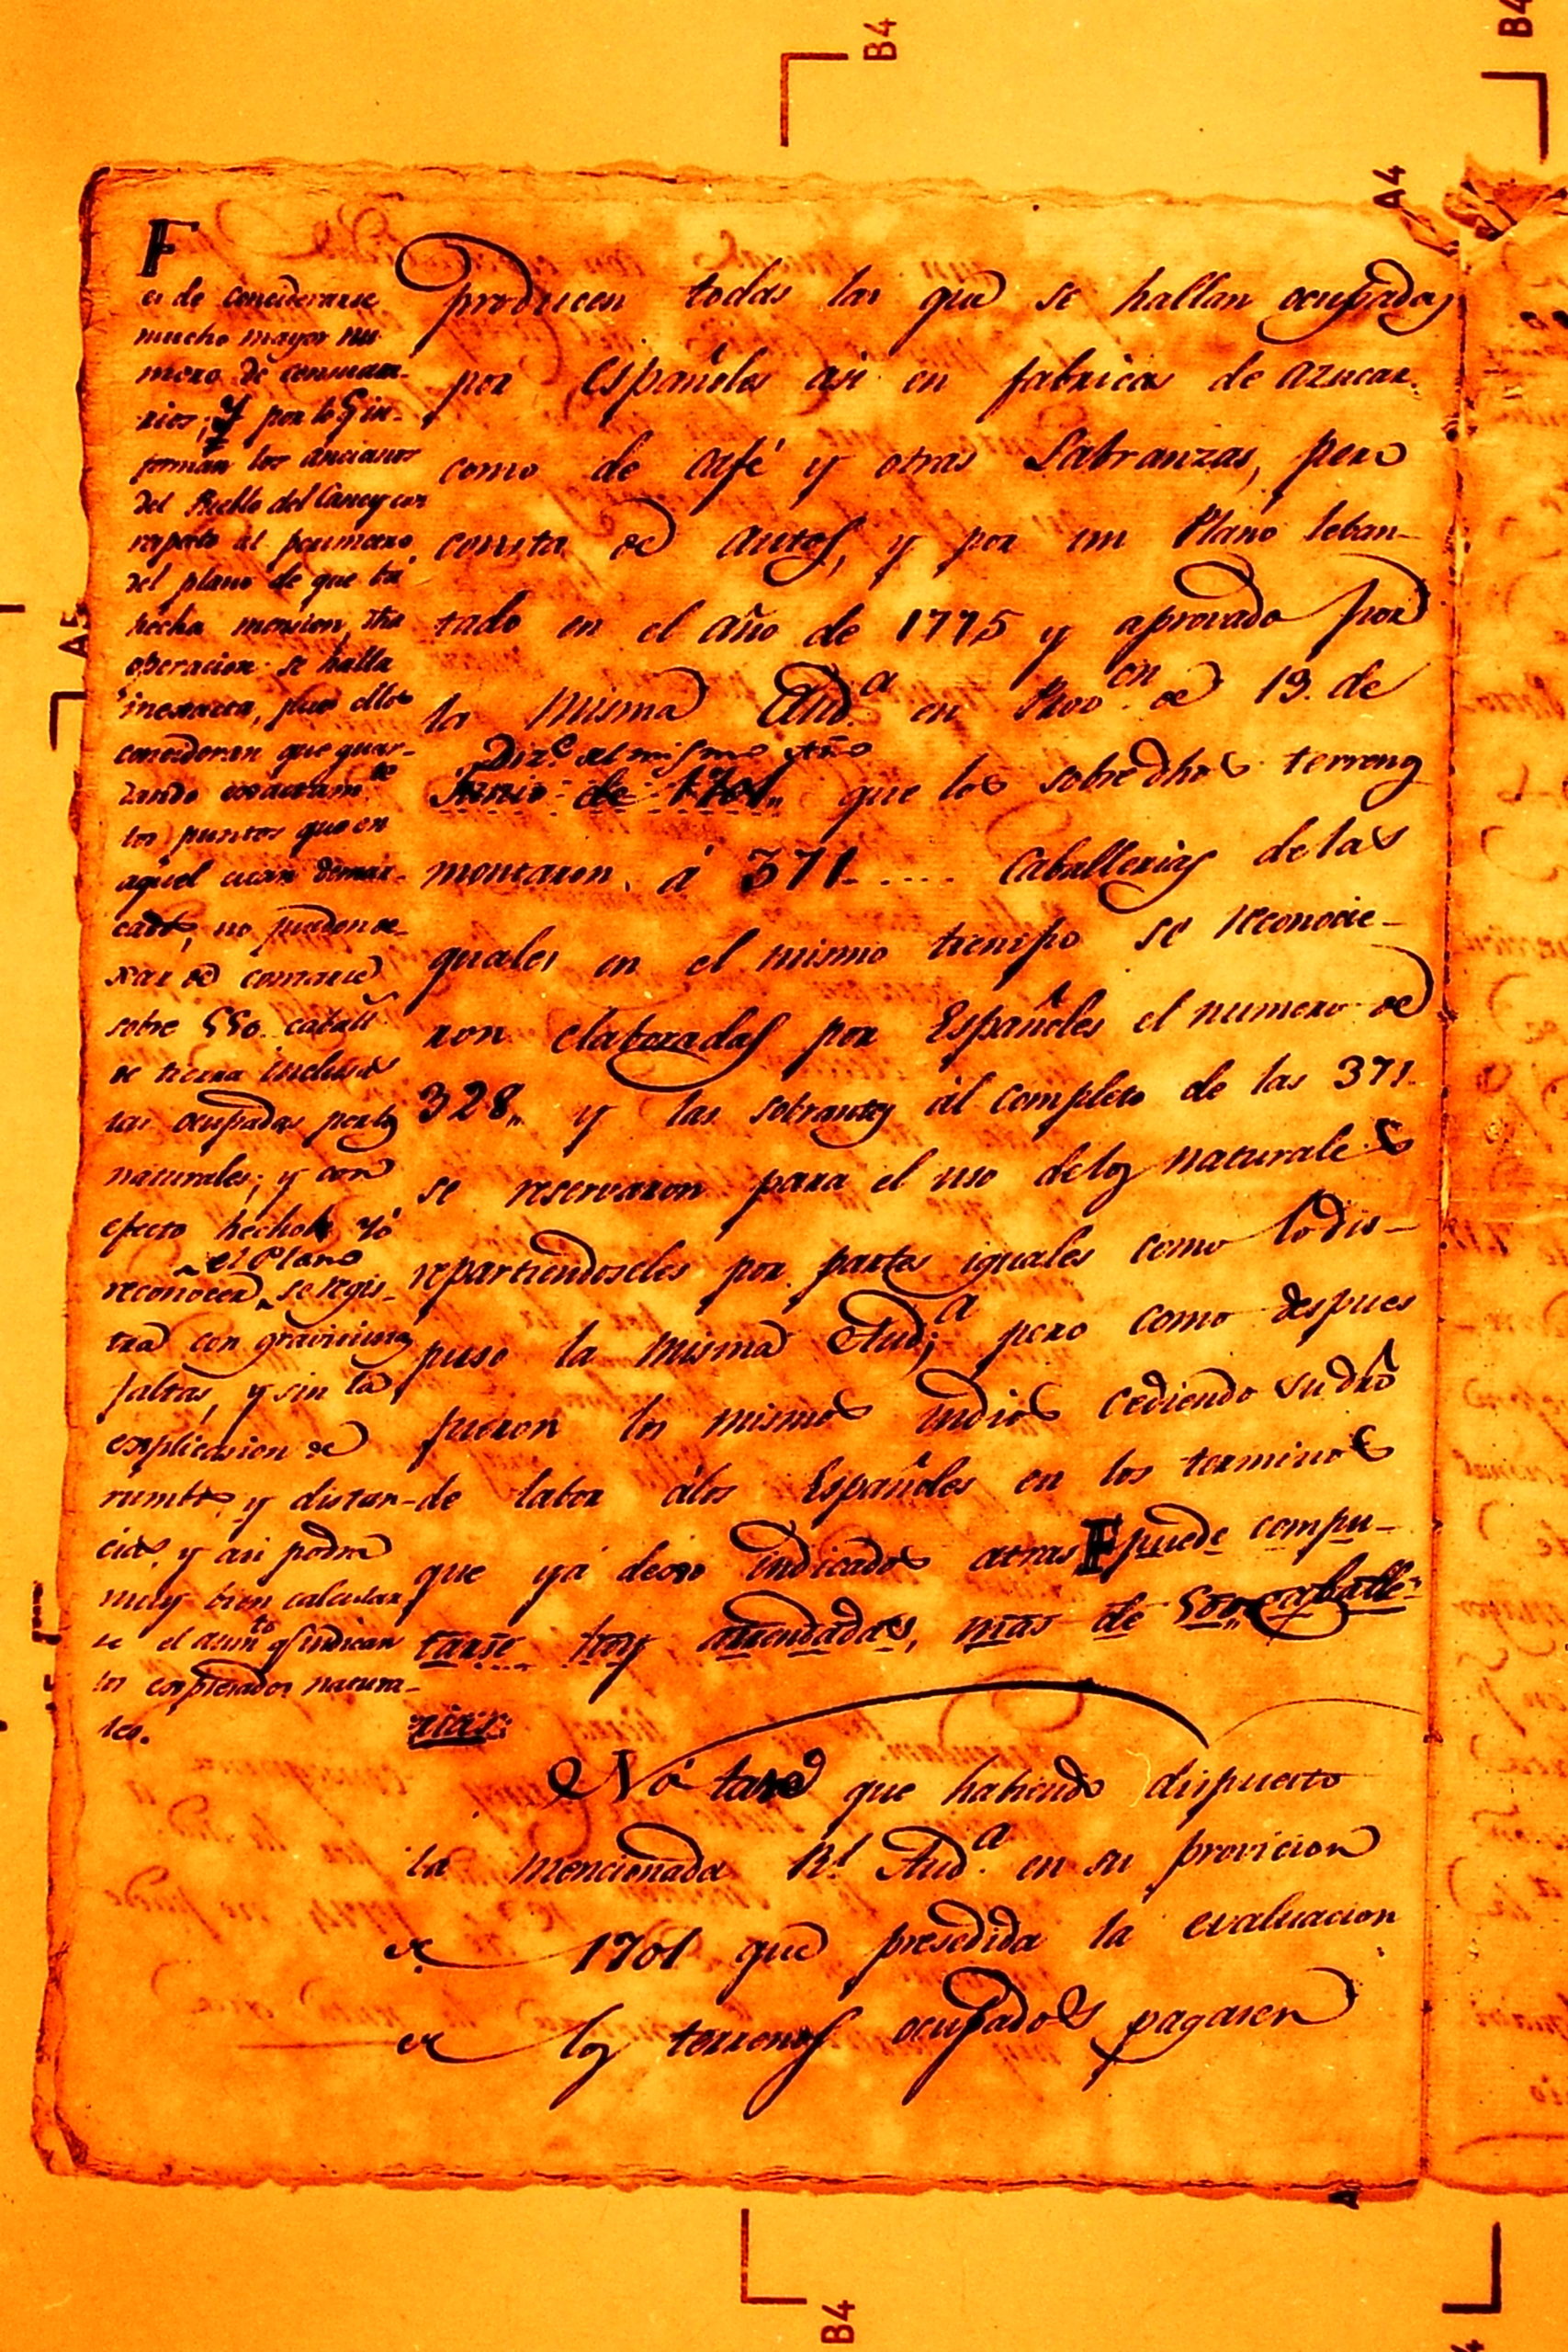 F
es de considerarse
mucho mayor nu-
mero de censuata-
rios; Y por lo q̃ in-
forman los ancianos
del Pueblo del Caney con
respeto al perimetro
del plano de que bá
hecha mension, dha
operacion se halla
inexacta, pues ellos
consideran que guar-
dando exactam.te
los puntos que en
aquel estan demar-
cados, no pueden de-
xar de contarse
sobre 550. caball.s
de tierra inclusas
las ocupadas por los
naturales; y con
efecto hecho Yó
el Plano
reconocer, se regis-
tra con gravisimas
faltas, y sin la
explicasion de
rumbos y distan-
cias, y asi podra
muy bien calcular
se el aum.to q̃ indican
los expresados natura-
les.
producen todas las que se hallan ocupadas
por Españoles asi en fabricas de azucar
como de café y otras Labranzas, pero
consta de autos, y por un Plano leban-
tado en el año de 1775 y aprovado por
la misma Aud.a en Prov.on de 19. de
Diz.e del mismo año
Junio de 1701,, que los sobredhos terrenos
montaron á 371..... Caballerias de las
quales en el mismo tiempo se reconocie-
ron elaboradas por Españoles el numero de
328,, y las sobrantes al completo de las 371.
se reservaron para el uso de los naturales
repartiendoseles por partes iguales como lo dis-
puso la misma Aud.a; pero como despues
fueron los mismos Indios cediendo su dro
de labor á los Españoles en los terminos
que yá dexo indicados atras F puede compu-
tarse hoy arrendadas, mas de 500,, caballe-
rias.
Nótase que habiendo dispuesto
la mencionada R.l Aud.a en su provicion
de 1701 que presedida la evaluacion
de los terrenos ocupados pagasen
B4
B4
A4
A5
B4